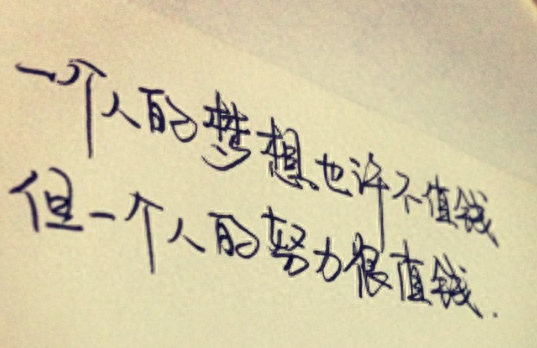 一个人的梦想也许不值钱
但一个人的努力很值钱.